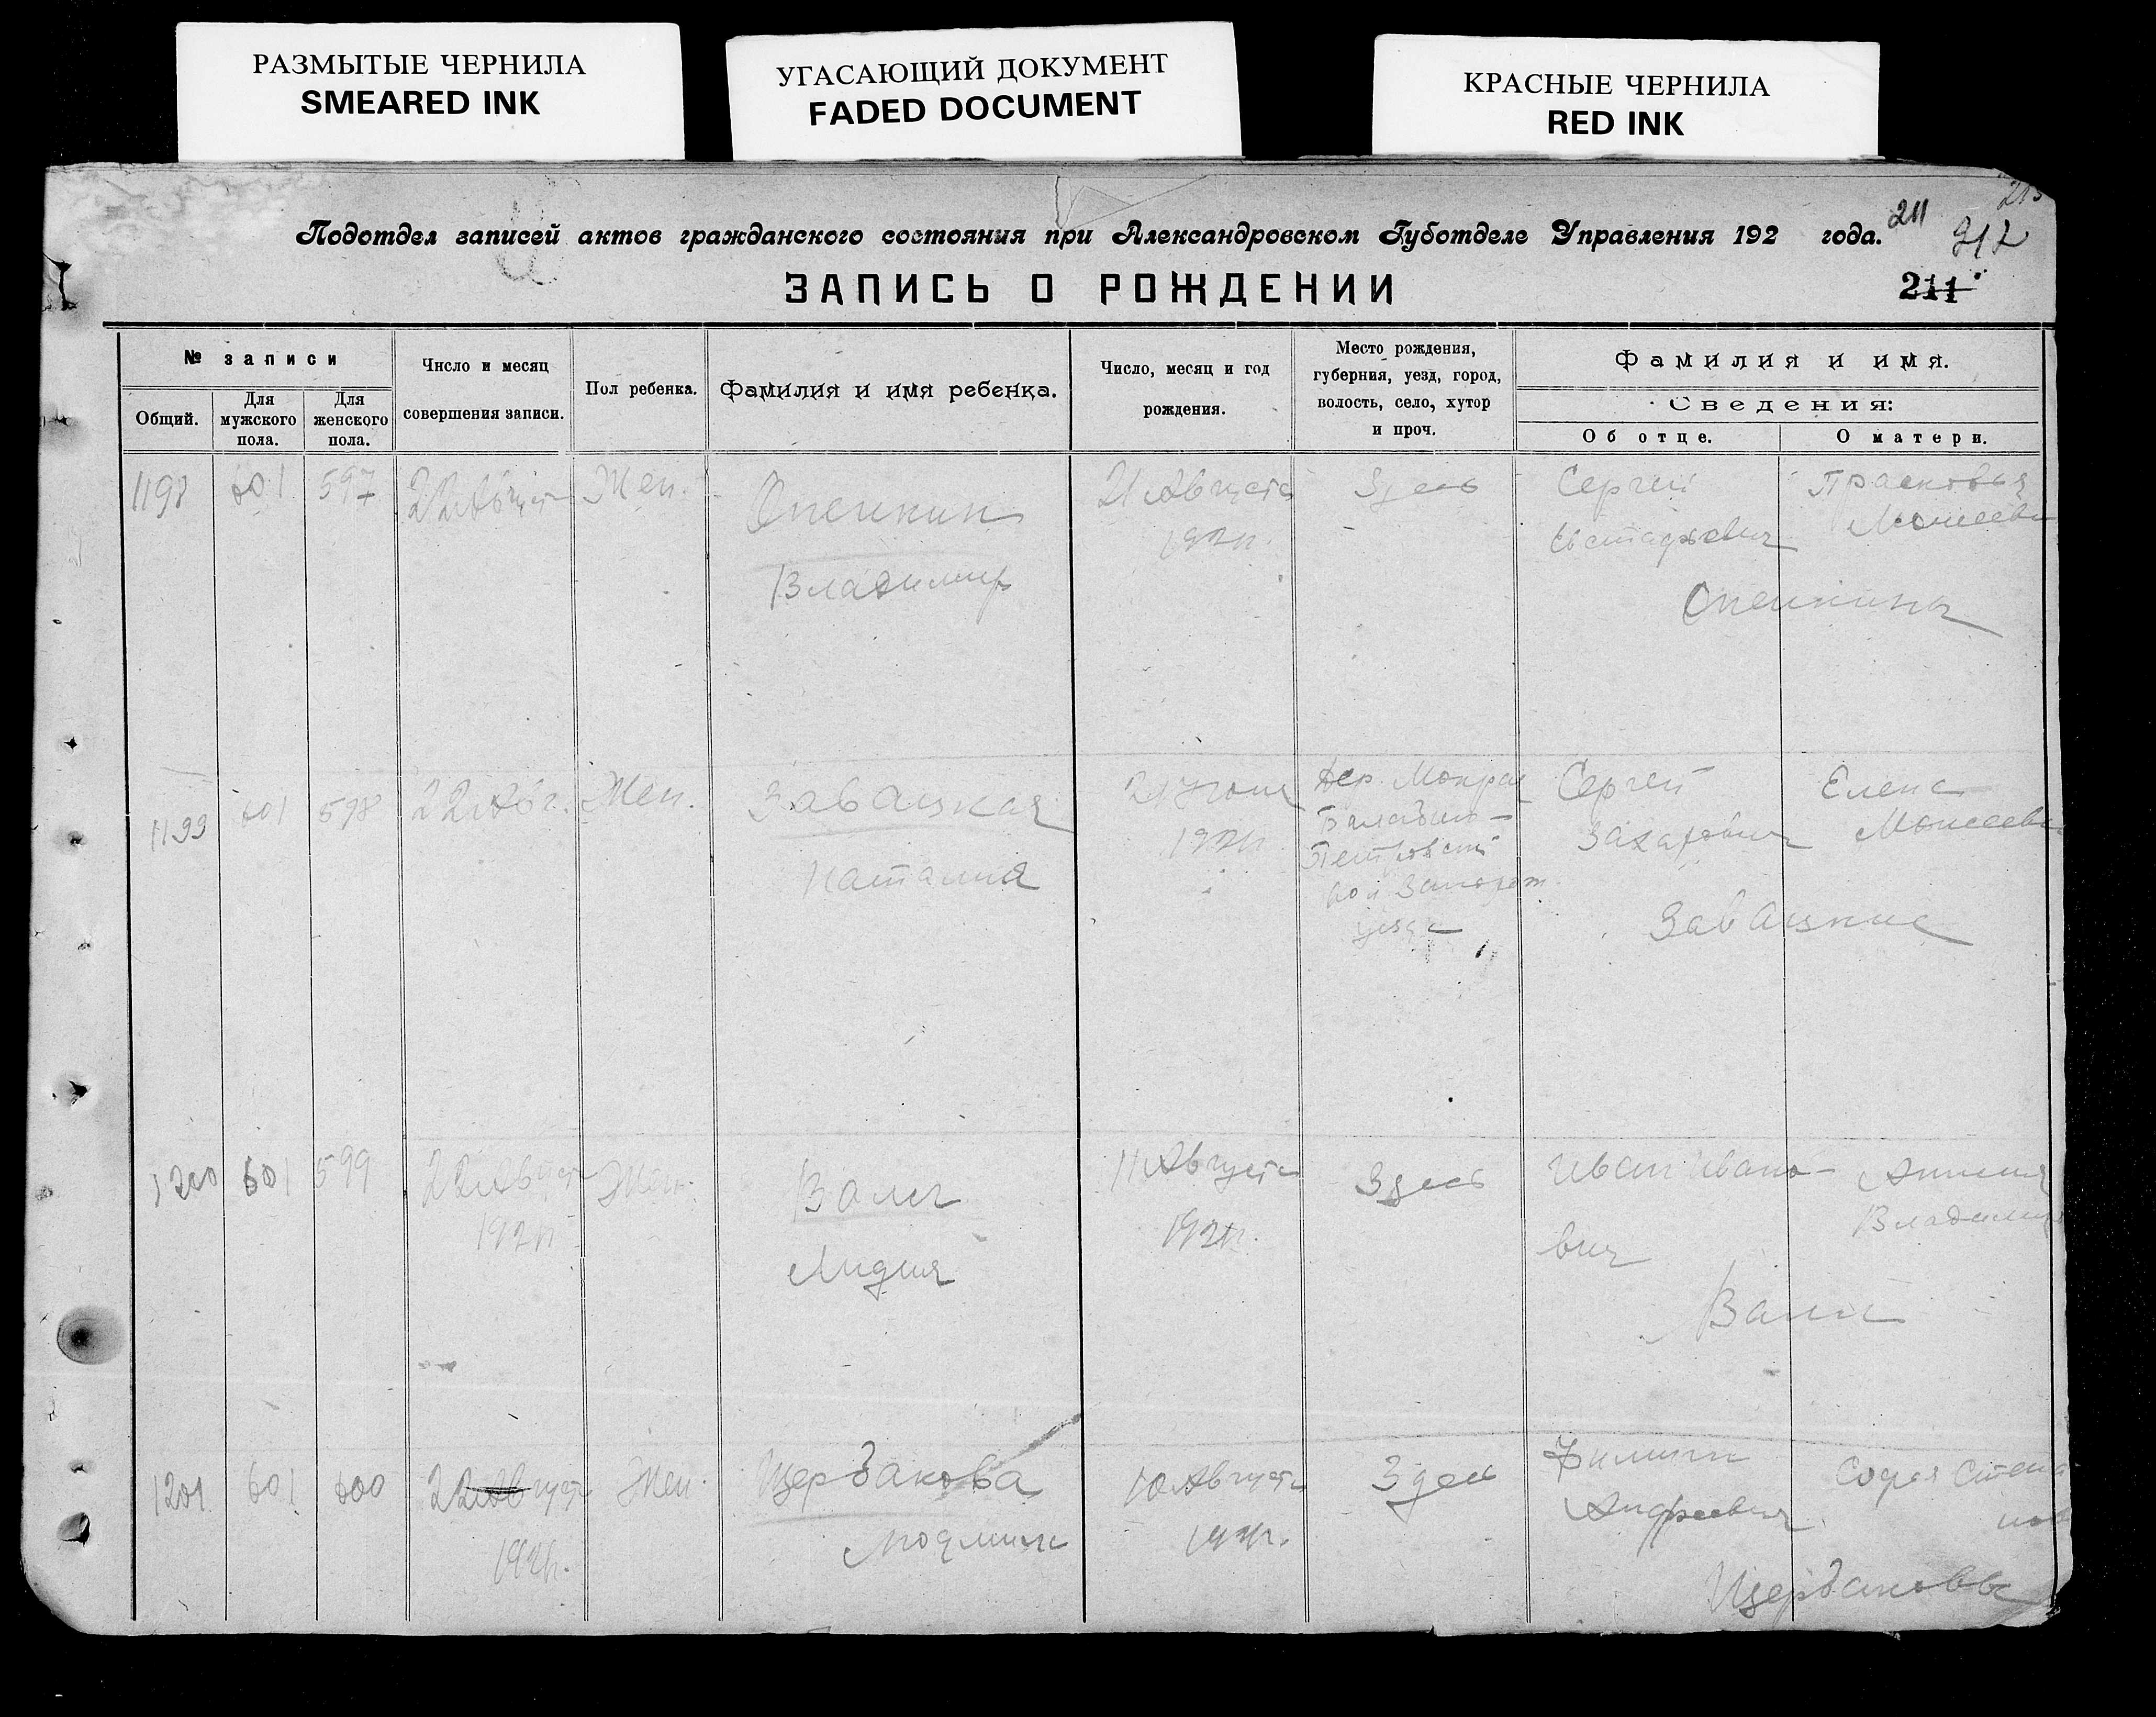 РАЗМЫТЫЕ ЧЕРНИЛА
SMEARED INK
УГАСАЮЩИЙ ДОКУМЕНТ
FADED DOCUMENT
КРАСНЫЕ ЧЕРНИЛА
RED INK
Подотдел записей актов гражданского состояния при Александровском Губотделе Управления 192 года.
211
212
ЗАПИСЬ О РОЖДЕНИИ
211
№ записи
Общий.
Для мужского пола.
Для женского пола.
Число и месяц
совершения записи.
Пол ребенка.
Фамилия и имя ребенка.
Число, месяц и год
рождения.
Место рождения,
губерния, уезд, город,
волость, село, хутор
и проч.
Фамилия и имя.
Сведения:
Об отце.
О матери.
1198 601 597 22 Август Жен.
Опенкин
Владимир
21 Августа
192
Здесь
Сергей
Евстафьевич
Прасковья
Моисеев
Опенкины
1199 601 598 22 Авг. Жен.
Завацкая
Наталия
21 Июля
192
Дер. Мокрая
Петровской
уезда
Сергей
Захарович
Елена
Моисеевн
Завацкие
1200 601 599 22 Август
192
Жен.
Лидия
11 Августа
192
Здесь
Иван Ивано-
вич
Владимир
1201 601 600 22 Август
192
Жен.
Щербакова
Людмила
10 Августа
192
Здесь
Филипп
Андреевич
София Степа
нов
Щербаковы